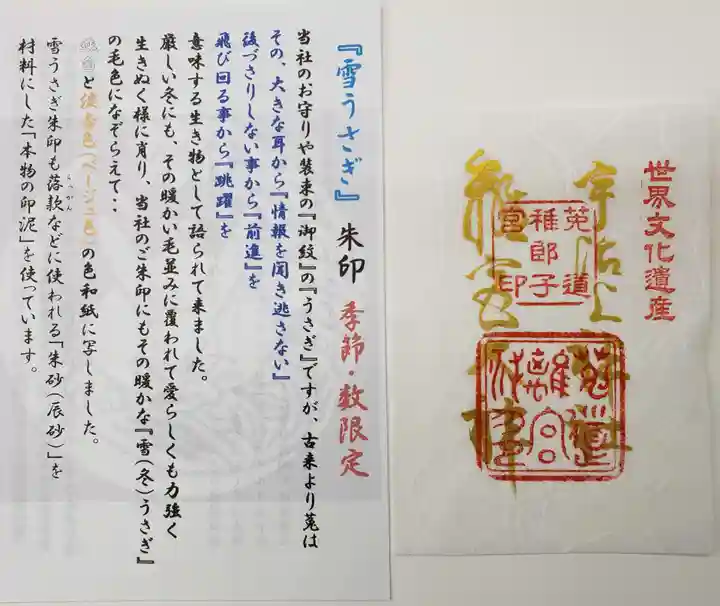 『雪うさぎ』朱印 季節・数限定
当社のお守りや装束の『御紋』の『うさぎ』ですが、古来より莵は
その、大きな耳から『情報を聞き逃さない』
後づさりしない事から『前進』を
飛び回る事から『跳躍』を
意味する生き物として語られて来ました。
厳しい冬にも、その暖かい毛並みに覆われて愛らしくも力強く
生きぬく様に肖り、当社のご朱印にもその暖かな『雪(冬)うさぎ』
の毛色になぞらえて・・
と
色(ベージュ色)の色和紙に写しました。
雪うさぎ朱印も落款などに使われる「朱砂(辰砂)」を
らっかん
材料にした「本物の印泥」を使っています。
世界文化遺産
宇治上神社
離宮
莵道
稚郎子
宮印